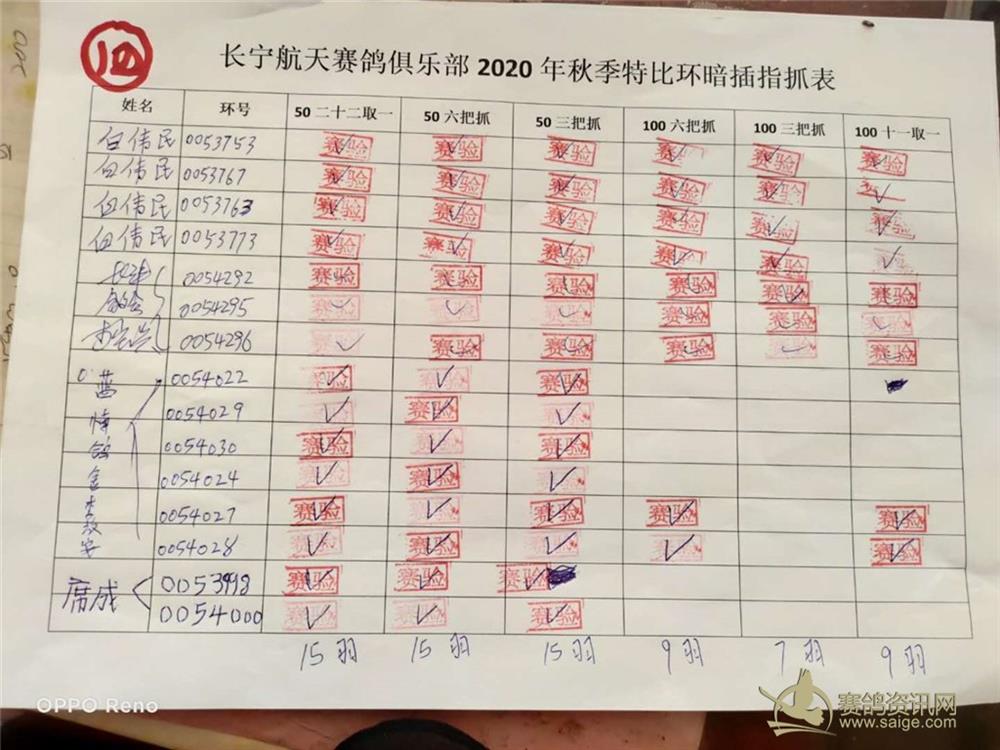 四
长宁航天赛鸽俱乐部 2020 年秋季特比环暗插指抓表
姓名 环号 50 二十二取一 50 六把抓 50 三把抓 100 六把抓 100 三把抓 100 十一取一
白伟民 0053753 赛验 赛验 赛验 赛验 赛验 赛验
白伟民 0053767 赛验 赛验 赛验 赛验 赛验
白伟民 0053763 赛验 赛验 赛验 赛验 赛验 赛验
白伟民 0053773 赛验 赛验 赛验 赛验 赛验
0054292 赛验 赛验 赛验 赛验 赛验 赛验
0054295 赛验 赛验 赛验 赛验 赛验 赛验
0054296 赛验 赛验 赛验 赛验 赛验 赛验
0054022 赛验 赛验 赛验
0054029 赛验 赛验 赛验
0054030 赛验 赛验 赛验
金 0054024 赛验 赛验 赛验
李 0054027 赛验 赛验 赛验 赛验 赛验
0054028 赛验 赛验 赛验 赛验 赛验
席成 0053998 赛验 赛验 赛验
0054000 赛验 赛验 赛验
15羽 15羽 15羽 9羽 7羽 9羽
OPPO Reno
赛鸽资讯网
www.saige.com